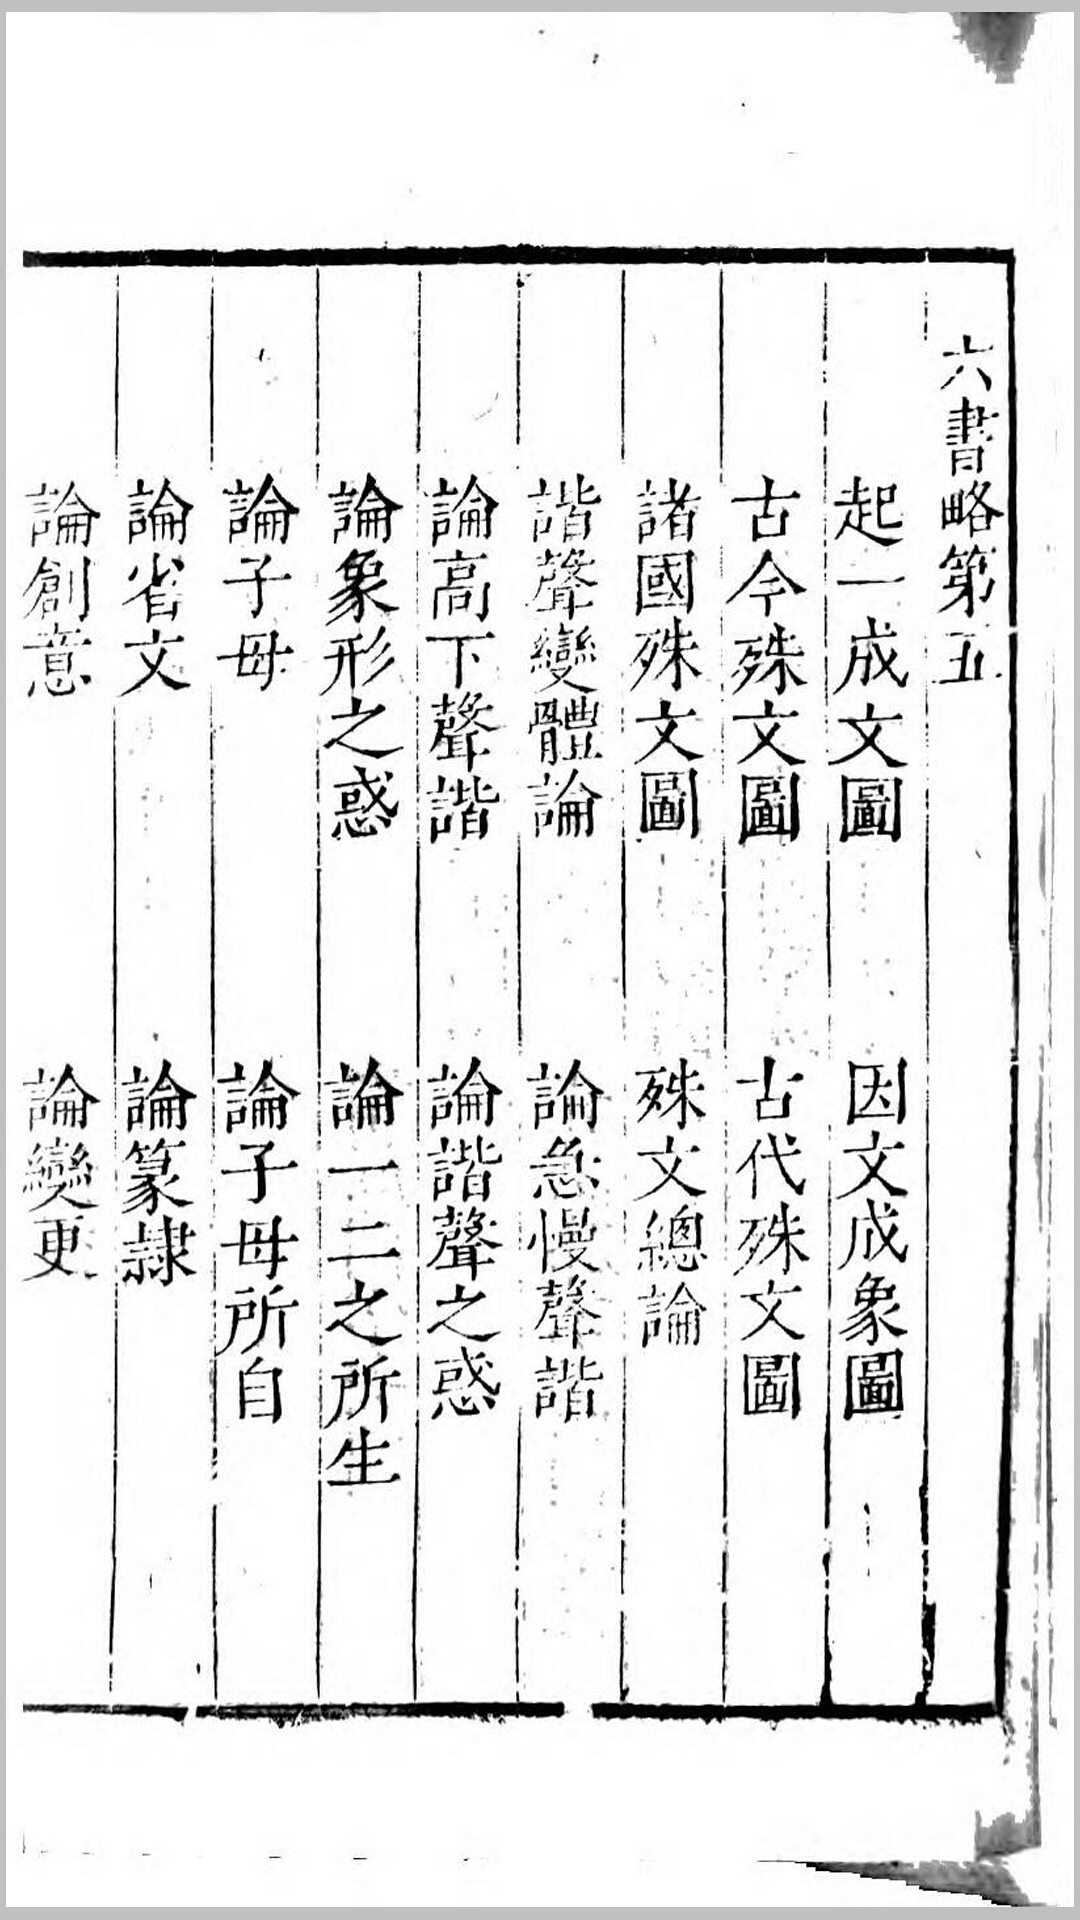 六書略第五
起一成文圖　因文成象圖
古今殊文圖　古代殊文圖
諸國殊文圖　殊文總論
諧聲變體論　論急慢聲諧
論高下聲諧　論諧聲之惑
論象形之惑　論一二之所生
論子母　論子母所自
論省文　論篆隸
論創意　論變更